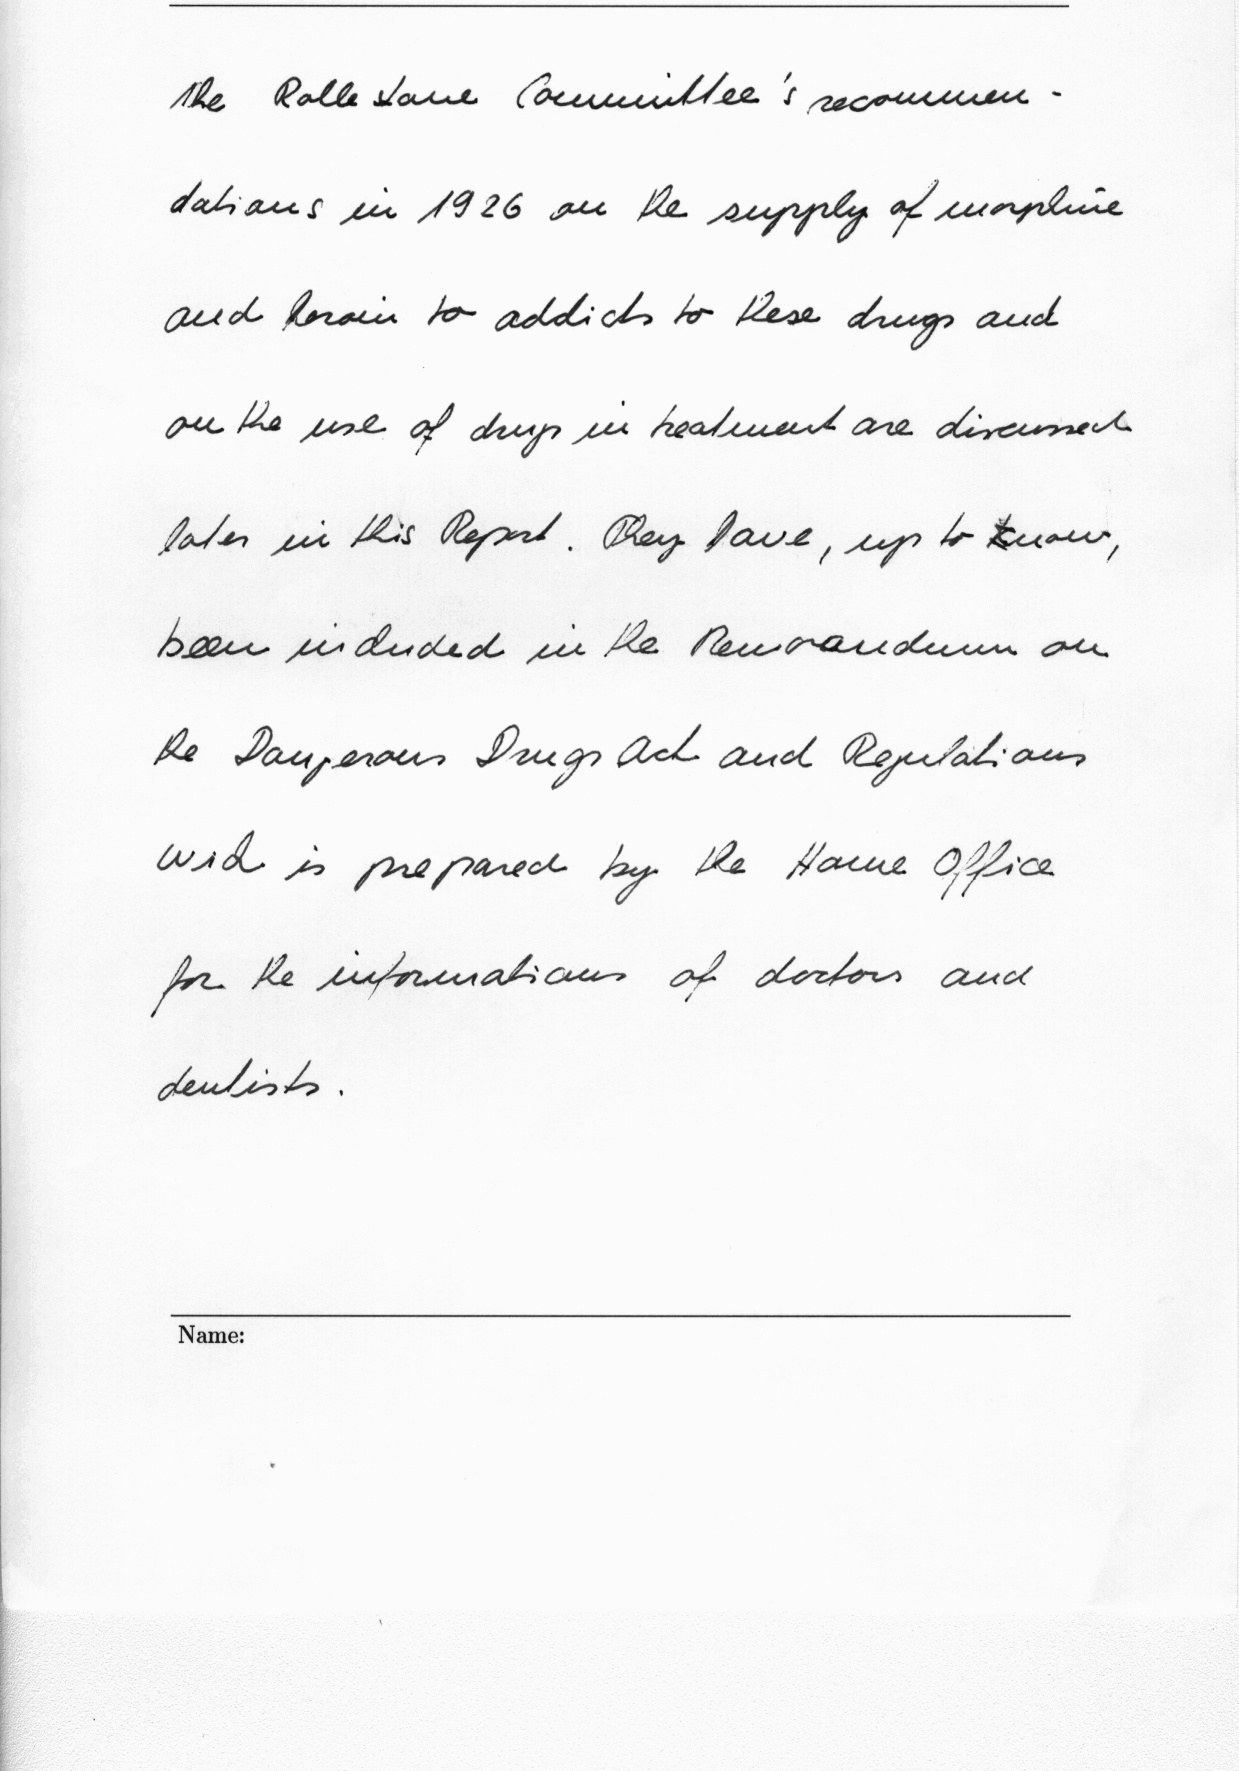 The Rollestone Committee's recommen-
dations in 1926 on the supply of morphine
and heroin to addicts to these drugs and
on the use of drugs in treatment are discussed
later in this Report. They have, up to know,
been included in the Memorandum on
the Dangerous Drugs Act and Regulations
wich is prepared by the Home Office
for the informations of doctors and
dentists.
Name: